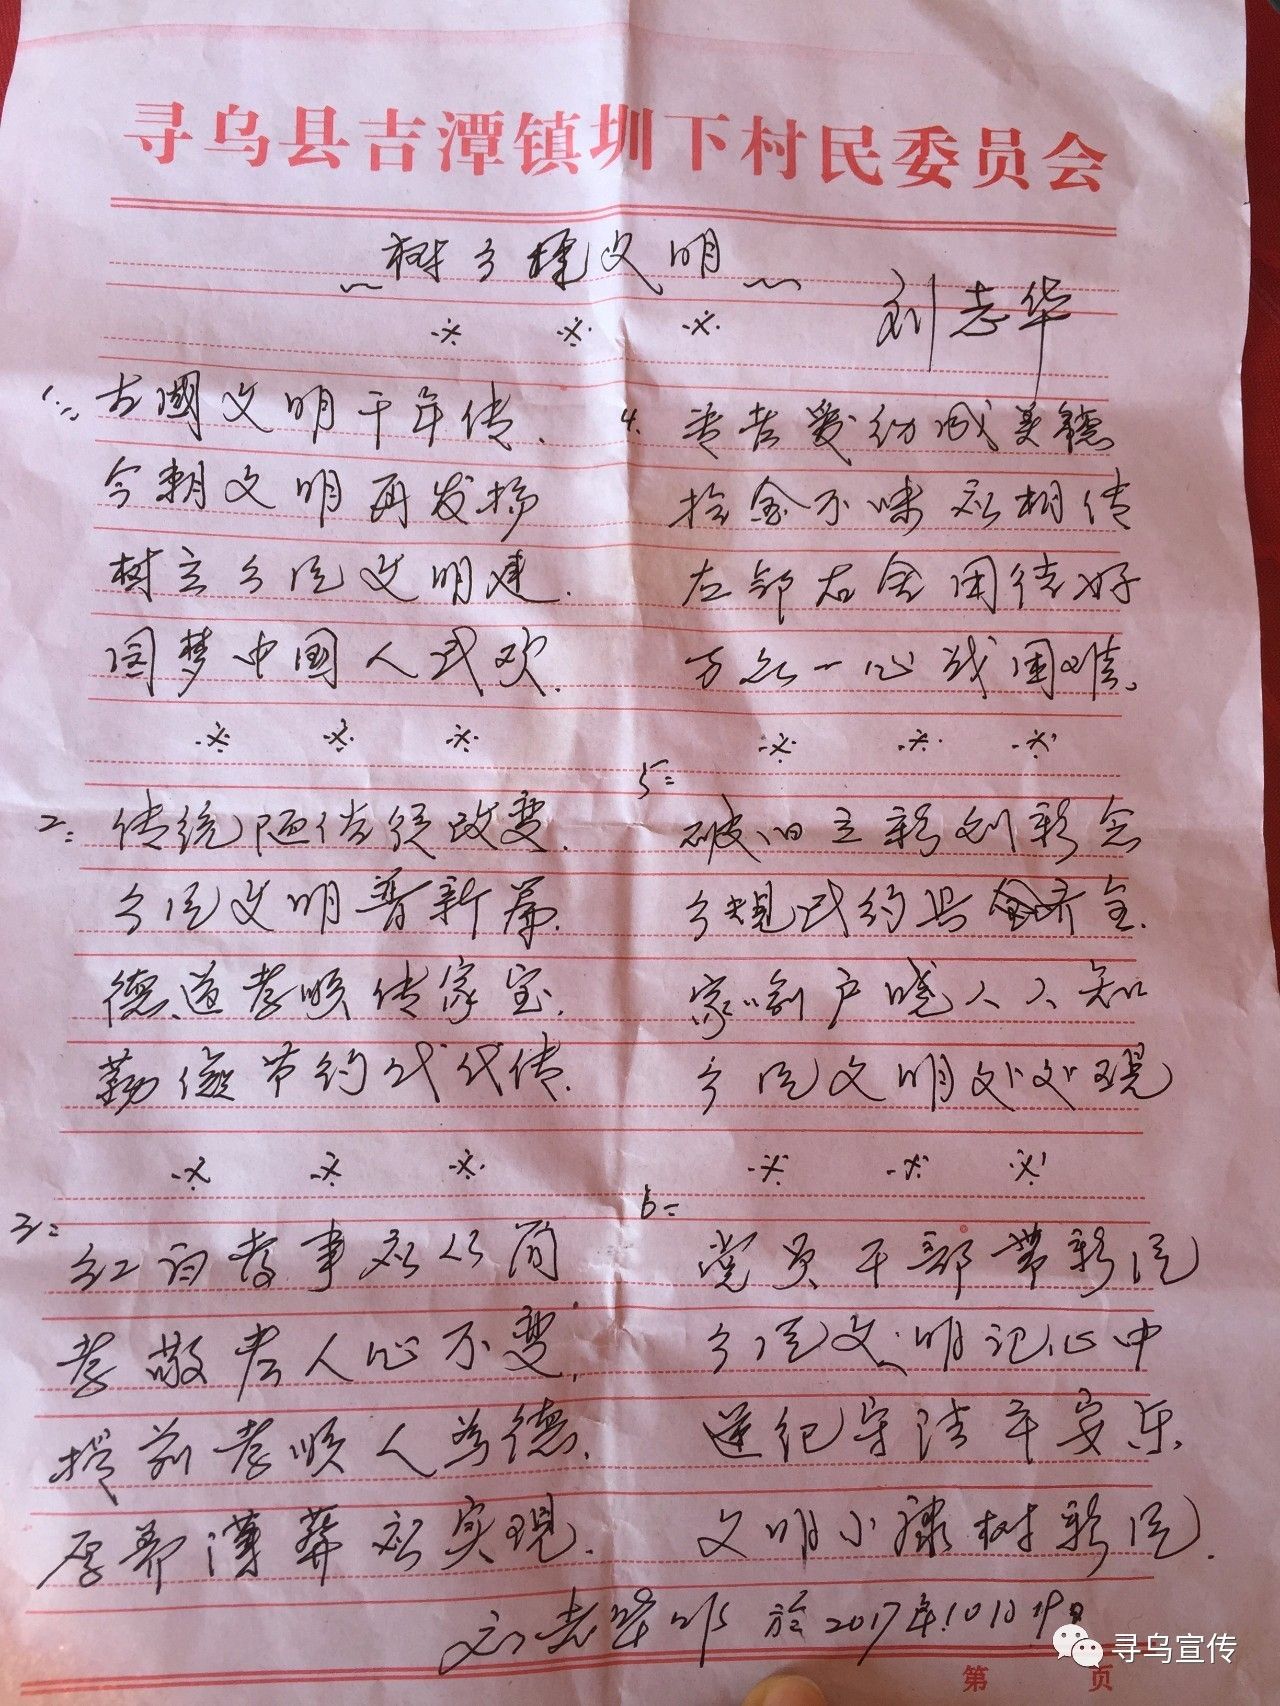 寻乌县吉潭镇圳下村民委员会
树乡 文明
刘志华
1.
古國文明千年传.
今朝文明再发扬
树立乡风文明建.
圆梦中国人民欢.
2:
传统陋俗须改变.
乡风文明普新篇.
德道孝顺传家宝.
勤俭节约代代传.
3:
红白孝事 从简
孝敬老人心不变,
提前孝顺人为德.
厚养薄葬 实現.
4.
尊老爱幼成美德
拾金不昧 相传
左邻右舍团结好
万众一心战困难。
5=
破旧立新创新念
乡规民约 齐全.
家喻户晓人人知
乡风文明处处現
6=
党员干部带新风
乡风文明记心中
遵纪守法平安乐.
文明小康树新风.
刘志华 於2017年10月19日
第 页
寻乌宣传